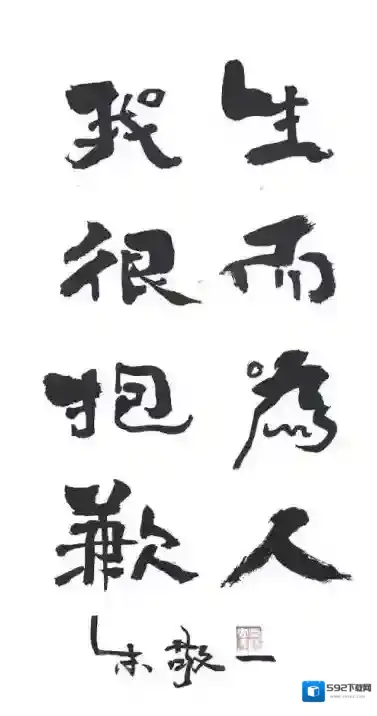 生而為人
我很抱歉
朱敬一
592下载网